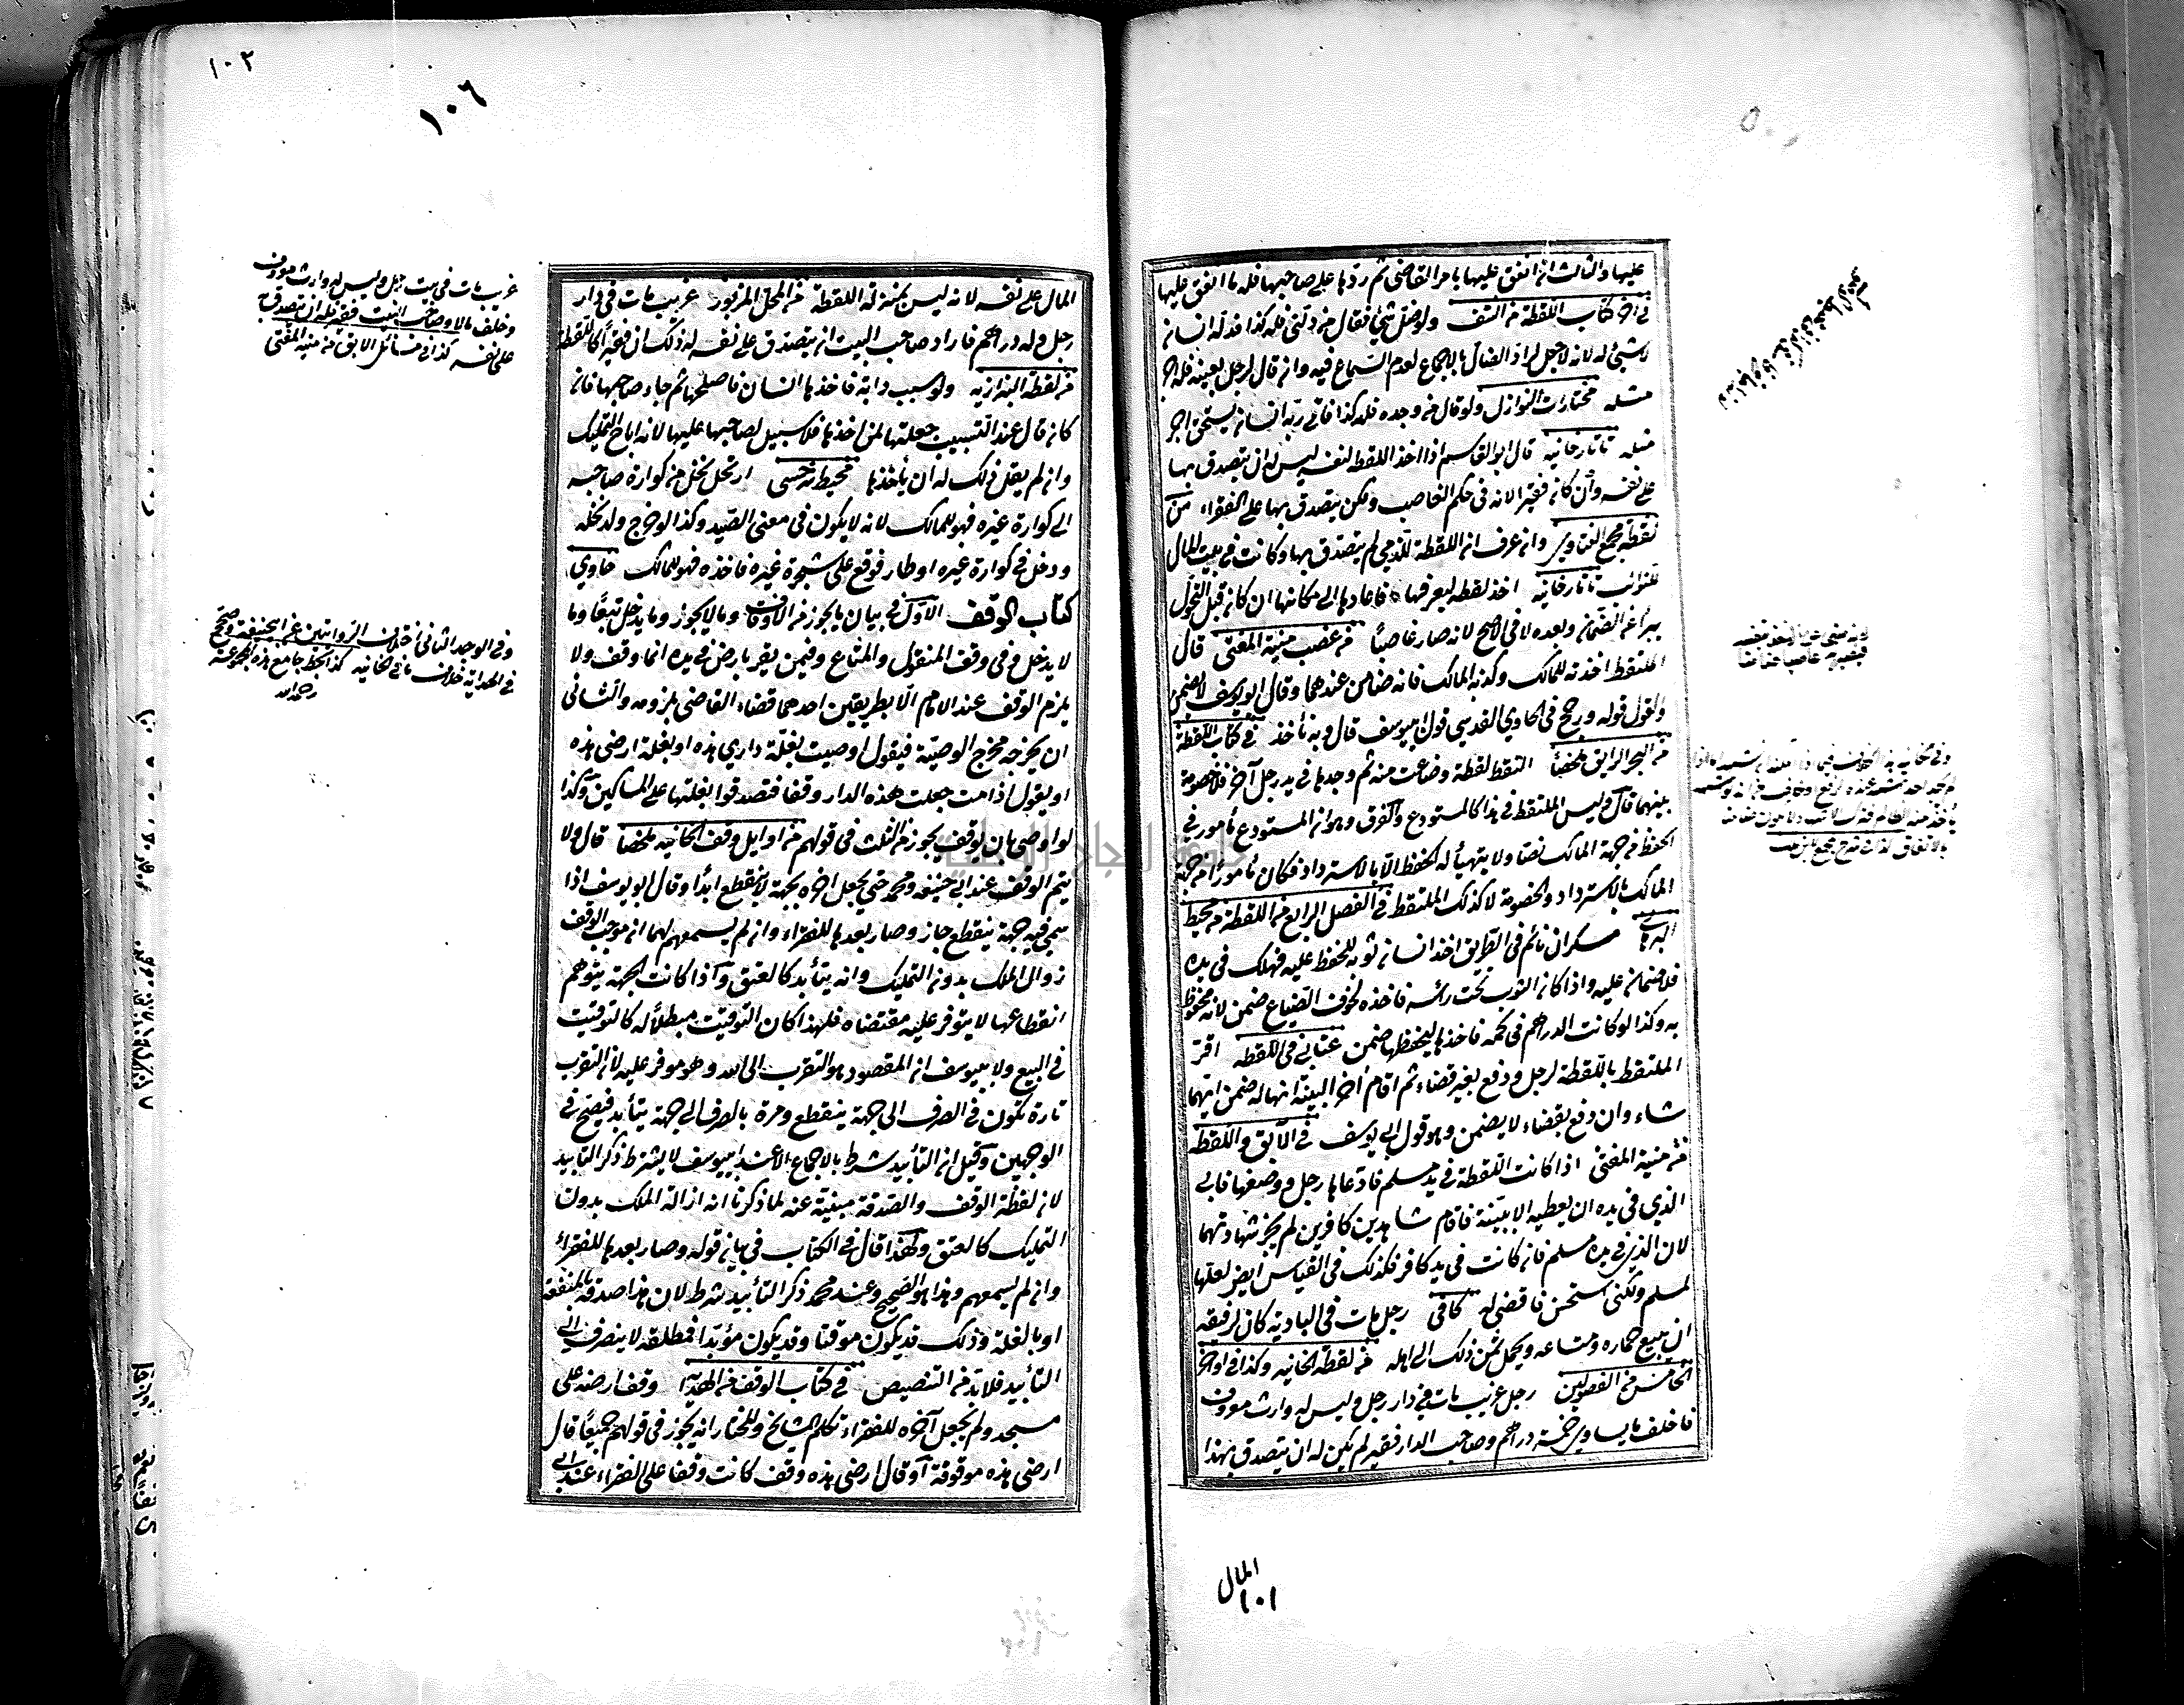 عليها والثالث اذا انفق عليها بامر القاضى ثم ردها على صاحبها فله ما انفق عليها
فى آخر كتاب اللقطة من النتف ولو ضل شئ فقال من دلنى فله كذا فدله انسان
لا شئ له لانه لا جعل لراد الضال بالاجماع لعدم السماع فيه وان قال لرجل بعينه فله اجر
مثله مختارات النوازل ولو قال من وجده فله كذا فاتى به انسان يستحق اجر
مثله تاتارخانيه قال ابو القاسم اذا اخذ اللقطه لنفسه ليس له ان يتصدق بها
على نفسه وأن كان فقيرا لانه فى حكم الغاصب ولكن يتصدق بها على الفقراء من
لقطة مجمع الفتاوى وان عرف ان اللقطة للذمى لم يتصدق بها وكانت فى بيت المال
للنوائب تاتارخانيه اخذ لقطه ليعرفها فاعادها الى مكانها ان كان قبل التحول
يبرأ عن الضمان وبعده لا فى الاصح لانه صار غاصبا من غصب منية المفتى قال
الملتقط اخذته للمالك وكذبه المالك فانه ضامن عندهما وقال ابو يوسف لا يضمن
والقول قوله ورجح فى الحاوي القدسي قول ابيوسف قال وبه نأخذ فى كتاب اللقطة
من البحر الرايق ملخصا التقط لقطة وضاعت منه ثم وجدها فى يد رجل آخر فلا خصومة
بينهما قال وليس الملتقط فى هذا كالمستودع والفرق هو ان المستودع مأمور فى
الحفظ من جهة المالك نصا ولا يتهيأ له الحفظ الا بالاسترداد فكان مأمورا من جهة
المالك بالاسترداد والخصومة لا كذلك الملتقط فى الفصل الرابع من اللقطة من محيط
البرهانى سكران نائم فى الطريق اخذ انسان ثوبه للحفظ عليه فهلك فى يده
فلا ضمان عليه واذا كان الثوب تحت رأسه فاخذه لخوف الضياع ضمن لانه محفوظ
به وكذا لو كانت الدراهم فى كمه فاخذها ليحفظها ضمن عتابى فى اللقطه اقر
الملتقط باللقطة لرجل ودفع بغير قضاء ثم اقام آخر البينة انها له ضمن ايهما
شاء وان دفع بقضاء لا يضمن وهو قول ابى يوسف فى الآبق واللقطه
من منية المفتى اذا كانت اللقطة فى يد مسلم فادعاها رجل ووصفها فابى
الذي فى يده ان يعطيه الا ببينة فاقام شاهدين كافرين لم يجز شهادتهما
لان الذى فى يده مسلم فان كانت فى يد كافر فكذلك فى القياس ايضا لعلها
لمسلم ولكنى استحسن فاقضى له كافى رجل مات فى البادية كان لرفيقه
ان يبيع حماره ومتاعه ويحمل ثمن ذلك الى اهله من لقطة الخانيه وكذا فى اواخر
الخامس من الفصولين رجل غريب مات فى دار رجل وليس له وارث معروف
فاخلف ما يساوى خمسة دراهم وصاحب الدار فقير لم يكن له ان يتصدق بهذا
المال
١٠١
١٠٢
١٠٦
المال على نفسه لانه ليس بمنزلة اللقطة من المحل المزبور غريب مات فى دار
رجل وله دراهم فاراد صاحب البيت ان يتصدق على نفسه له ذلك ان فقيرا كاللقطة
من لقطة البزازيه ولو سيب دابة فاخذها انسان فاصلحها ثم جاء صاحبها فان
كان قال عند التسييب جعلتها لمن اخذها فلا سبيل لصاحبها عليها لانه اباح التمليك
وان لم يقل ذلك له ان يأخذها محيط سرخسى ارتحل نحل من كوارة صاحبه
الى كوارة غيره فهو للمالك لانه لا يكون فى معنى الصيد وكذا لو خرج ولد نحله
ودخل فى كوارة غيره او طار فوقع على شجرة غيره فاخذه فهو للمالك حاوي
كتاب الوقف الاول فى بيان ما يجوز من الاوقاف وما لا يجوز وما يدخل تبعا وما
لا يدخل وفى وقف المنقول والمتاع وفيمن يقر بارض فى يده انها وقف ولا
يلزم الوقف عند الامام الا بطريقين احدهما قضاء القاضى بلزومه والثانى
ان يخرجه مخرج الوصية فيقول اوصيت بغلة داري هذه او بغلة ارضى هذه
او يقول اذا مت جعلت هذه الدار وقفا فتصدقوا بغلتها على المساكين وكذا
لو اوصى بان يوقف يجوز من الثلث فى قولهم من اوايل وقف الخانيه ملخصا قال ولا
يتم الوقف عند ابى حنيفه ومحمد حتى يجعل آخره بجهة لا ينقطع ابدا وقال ابو يوسف اذا
سمى فيه جهة ينقطع جاز وصار بعدها للفقراء وان لم يسمهم لهما ان موجب الوقف
زوال الملك بدون التمليك وانه يتأبد كالعتق وآذا كانت الجهة يتوهم
انقطاعها لا يتوفر عليه مقتضاه فلهذا كان التوقيت مبطلا له كالتوقيت
فى البيع ولابيوسف ان المقصود هو التقرب الى الله وهو موفر عليه لان التقرب
تارة تكون فى الصرف الى جهة ينقطع ومرة بالصرف الى جهة يتأبد فيصح فى
الوجهين وقيل ان التأبيد شرط بالاجماع الا عند ابيوسف لا يشترط ذكر التأبيد
لان لفظة الوقف والصدقة مبنية عنه لما ذكرنا انه ازالة الملك بدون
التمليك كالعتق ولهذا قال فى الكتاب فى بيان قوله وصار بعدها للفقراء
وان لم يسمهم وهذا هو الصحيح وعند محمد ذكر التأبيد شرط لان هذا صدقة بالمنفعة
او بالغلة وذلك قد يكون موقتا وقد يكون مؤبدا فمطلقه لا ينصرف الى
التأبيد فلا بد من التنصيص فى كتاب الوقف من الهديه وقف ارضه على
مسجد ولم يجعل آخره للفقراء تكلم المشايخ والمختار انه يجوز فى قولهم جميعا قال
ارضى هذه موقوفة آو قال ارضى هذه وقف كانت وقفا على الفقراء عند ابى
غريب مات فى بيت رجل وليس له وارث معروف
وخلف مالا وصاحب البيت فقير فله ان يتصدق
على نفسه كذا فى مسائل الابق من منية المفتى
وفى الوجه الثانى اختلاف الروايتين عن ابى حنيفة وصحح
فى الهداية خلاف ما فى الخانيه كذا بخط جامع هذه المجموعة
رحمه الله